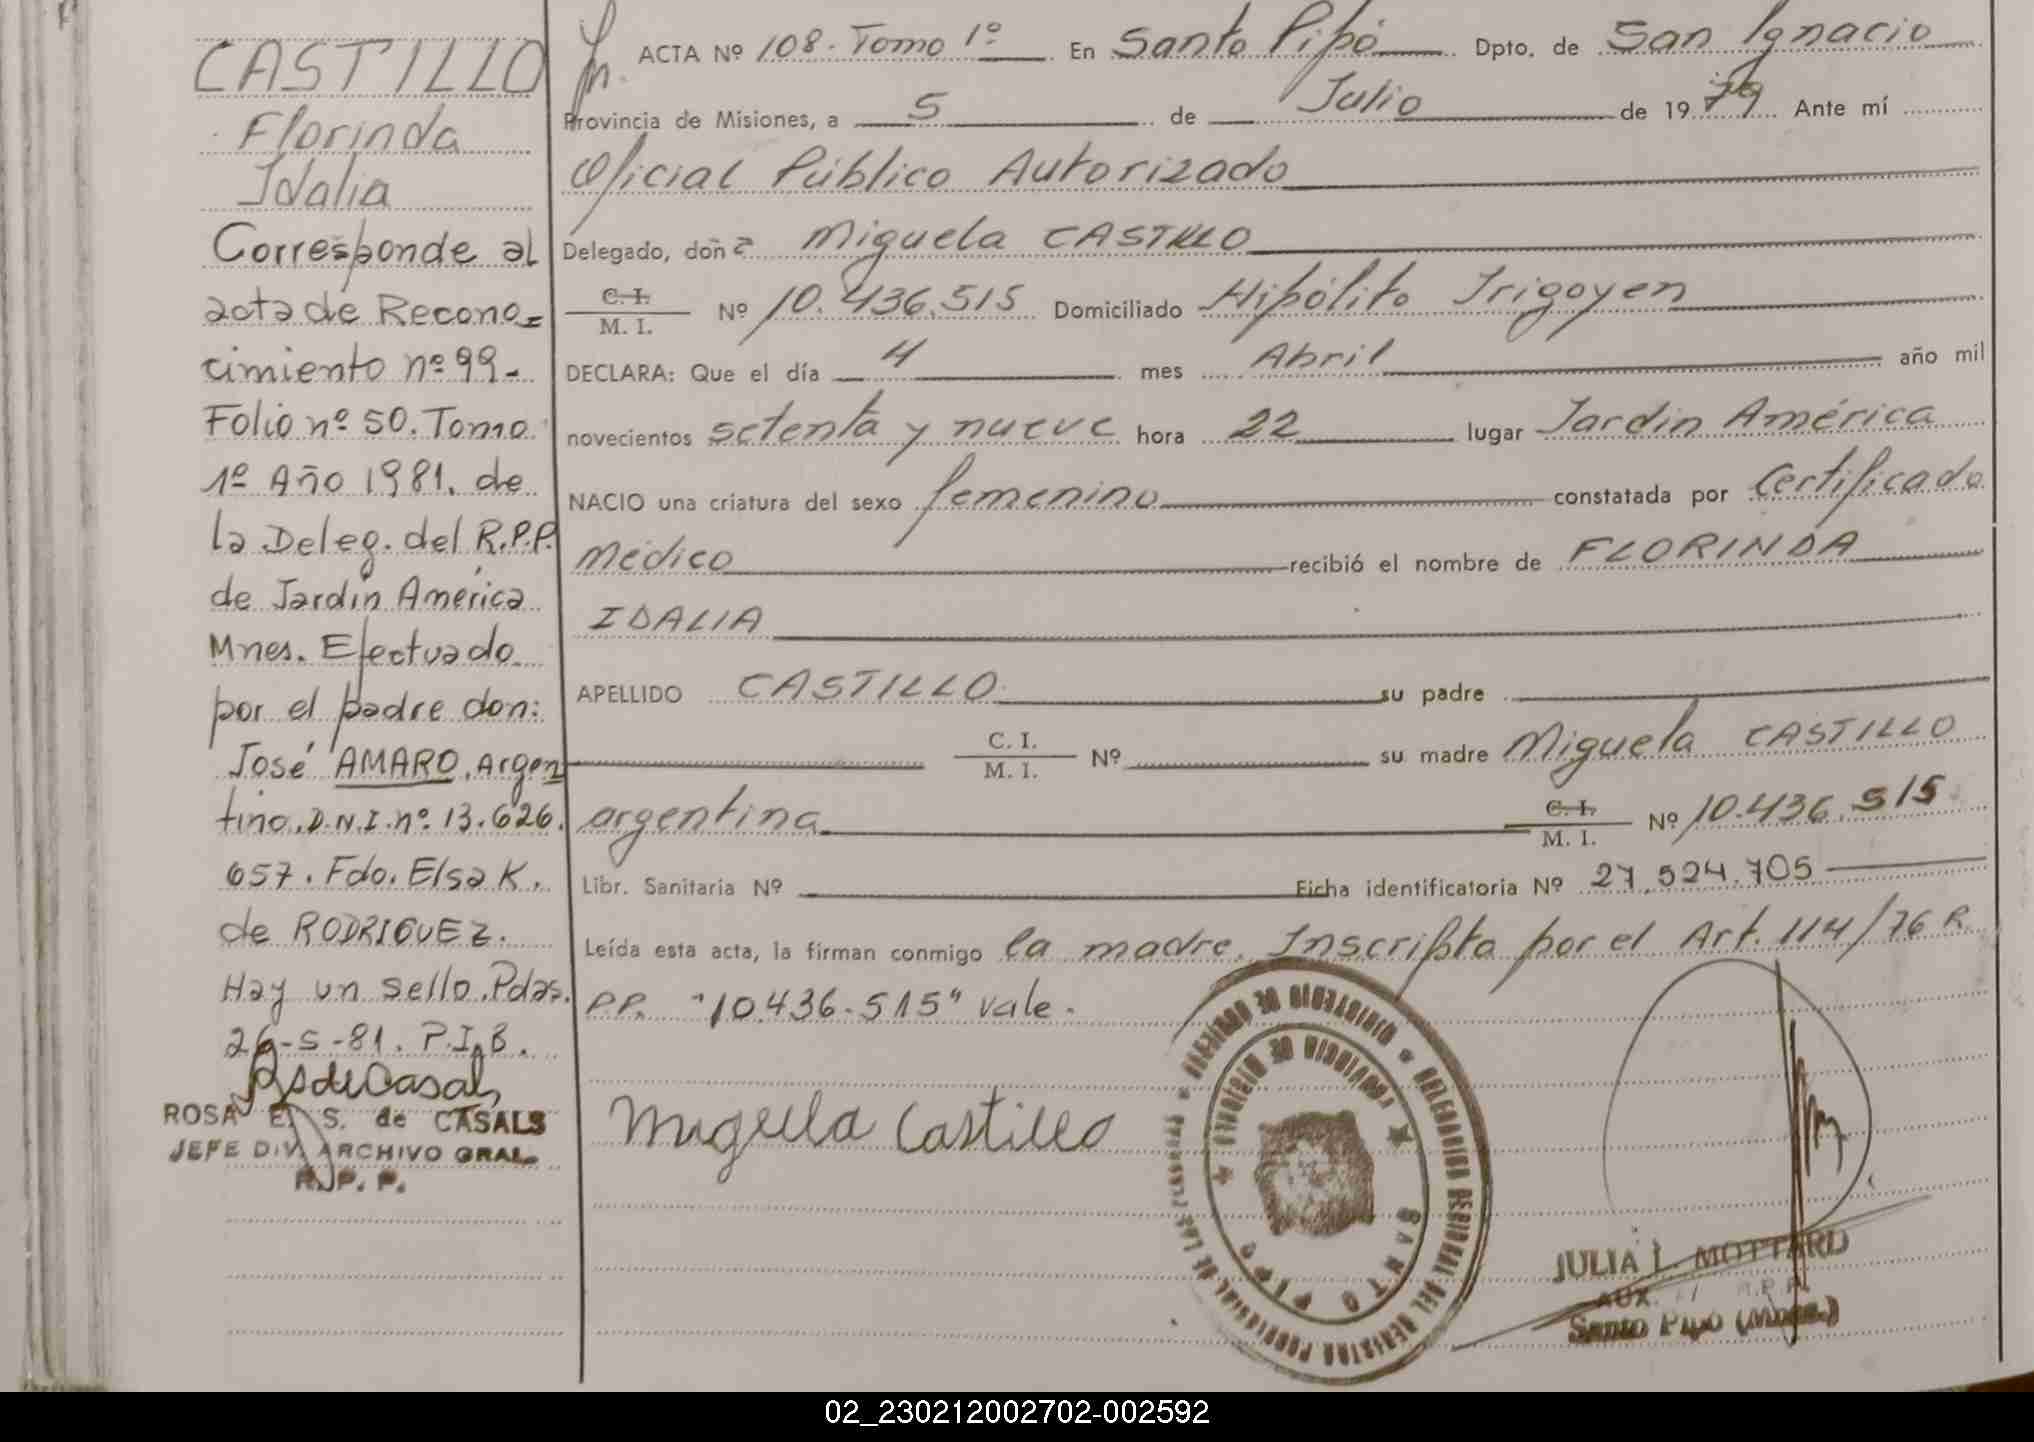 CASTILLO
Florinda
Idalia
Corresponde al
acta de Recono=
cimiento nº 99-
Folio nº 50. Tomo
1º Año 1981. de
la Deleg. del R.P.P.
de Jardín América
Mnes. Efectuado
por el padre don:
José AMARO. Argen
tino. D.N.I. nº 13.626.
657. Fdo. Elsa K.
de RODRIGUEZ.
Hay un sello. Pdas.
26-5-81. P.I.B.
RSdeCasals
ROSA E. S. de CASALS
JEFE DIV. ARCHIVO GRAL.
R. P. P.
ACTA Nº 108. Tomo 1º En Santo Pipó Dpto. de San Ignacio
Provincia de Misiones, a 5 de Julio de 1979 Ante mí
Oficial Público Autorizado
Delegado, doña Miguela CASTILLO
C. I. / M. I. Nº 10.436.515 Domiciliado Hipólito Irigoyen
DECLARA: Que el día 4 mes Abril año mil
novecientos setenta y nueve hora 22 lugar Jardín América
NACIO una criatura del sexo femenino constatada por Certificado
Médico recibió el nombre de FLORINDA
IDALIA
APELLIDO CASTILLO su padre
C. I. / M. I. Nº su madre Miguela CASTILLO
argentina C. I. / M. I. Nº 10.436.515
Libr. Sanitaria Nº Ficha identificatoria Nº 27.524.705
Leída esta acta, la firman conmigo la madre. Inscripta por el Art. 114/76 R.
P.P. "10.436.515" vale.
Miguela Castillo
MINISTERIO DE GOBIERNO
DELEGACION REGIONAL DEL REGISTRO PROVINCIAL DE LAS PERSONAS
PROVINCIA DE MISIONES
SANTO PIPO
JULIA L. MOTTARD
AUX. R.P.P.
Santo Pipó (Mnes.)
02_230212002702-002592